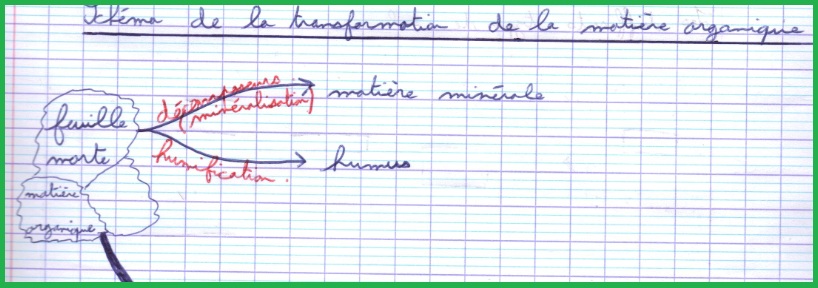 Schéma de la transformation de la matière organique
décomposeurs
(minéralisation)
matière minérale
feuille
morte
humification.
humus
matière
organique